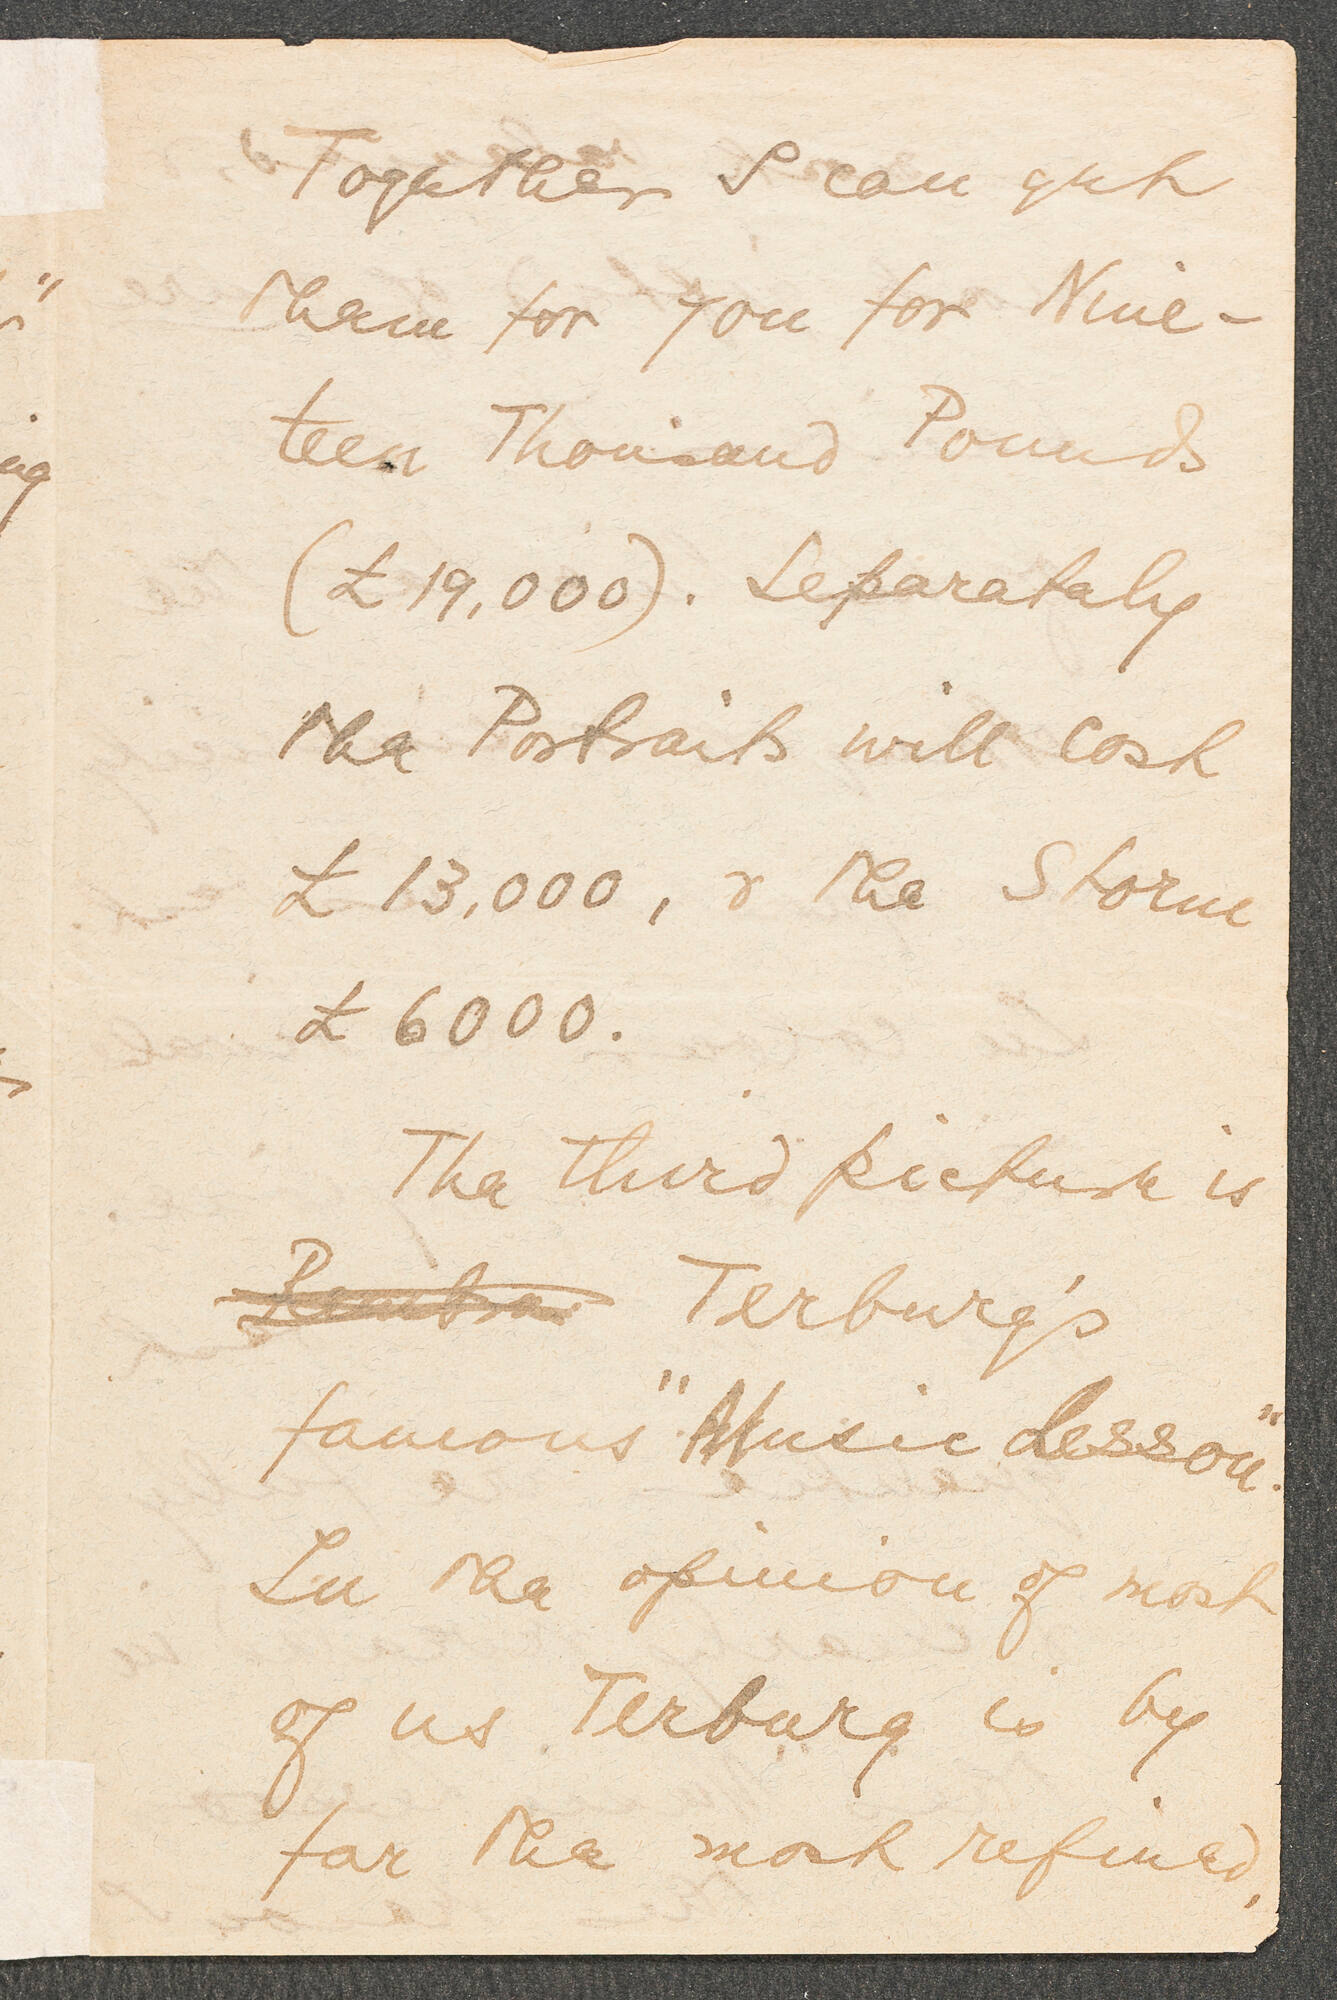 Together I can get
them for you for Nine-
teen Thousand Pounds
(£19,000). Separately
the Portraits will cost
£13,000, & the Storm
£6000.
The third picture is
Rembra Terburg's
famous "Music Lesson".
In the opinion of most
of us Terburg is by
far the most refined,